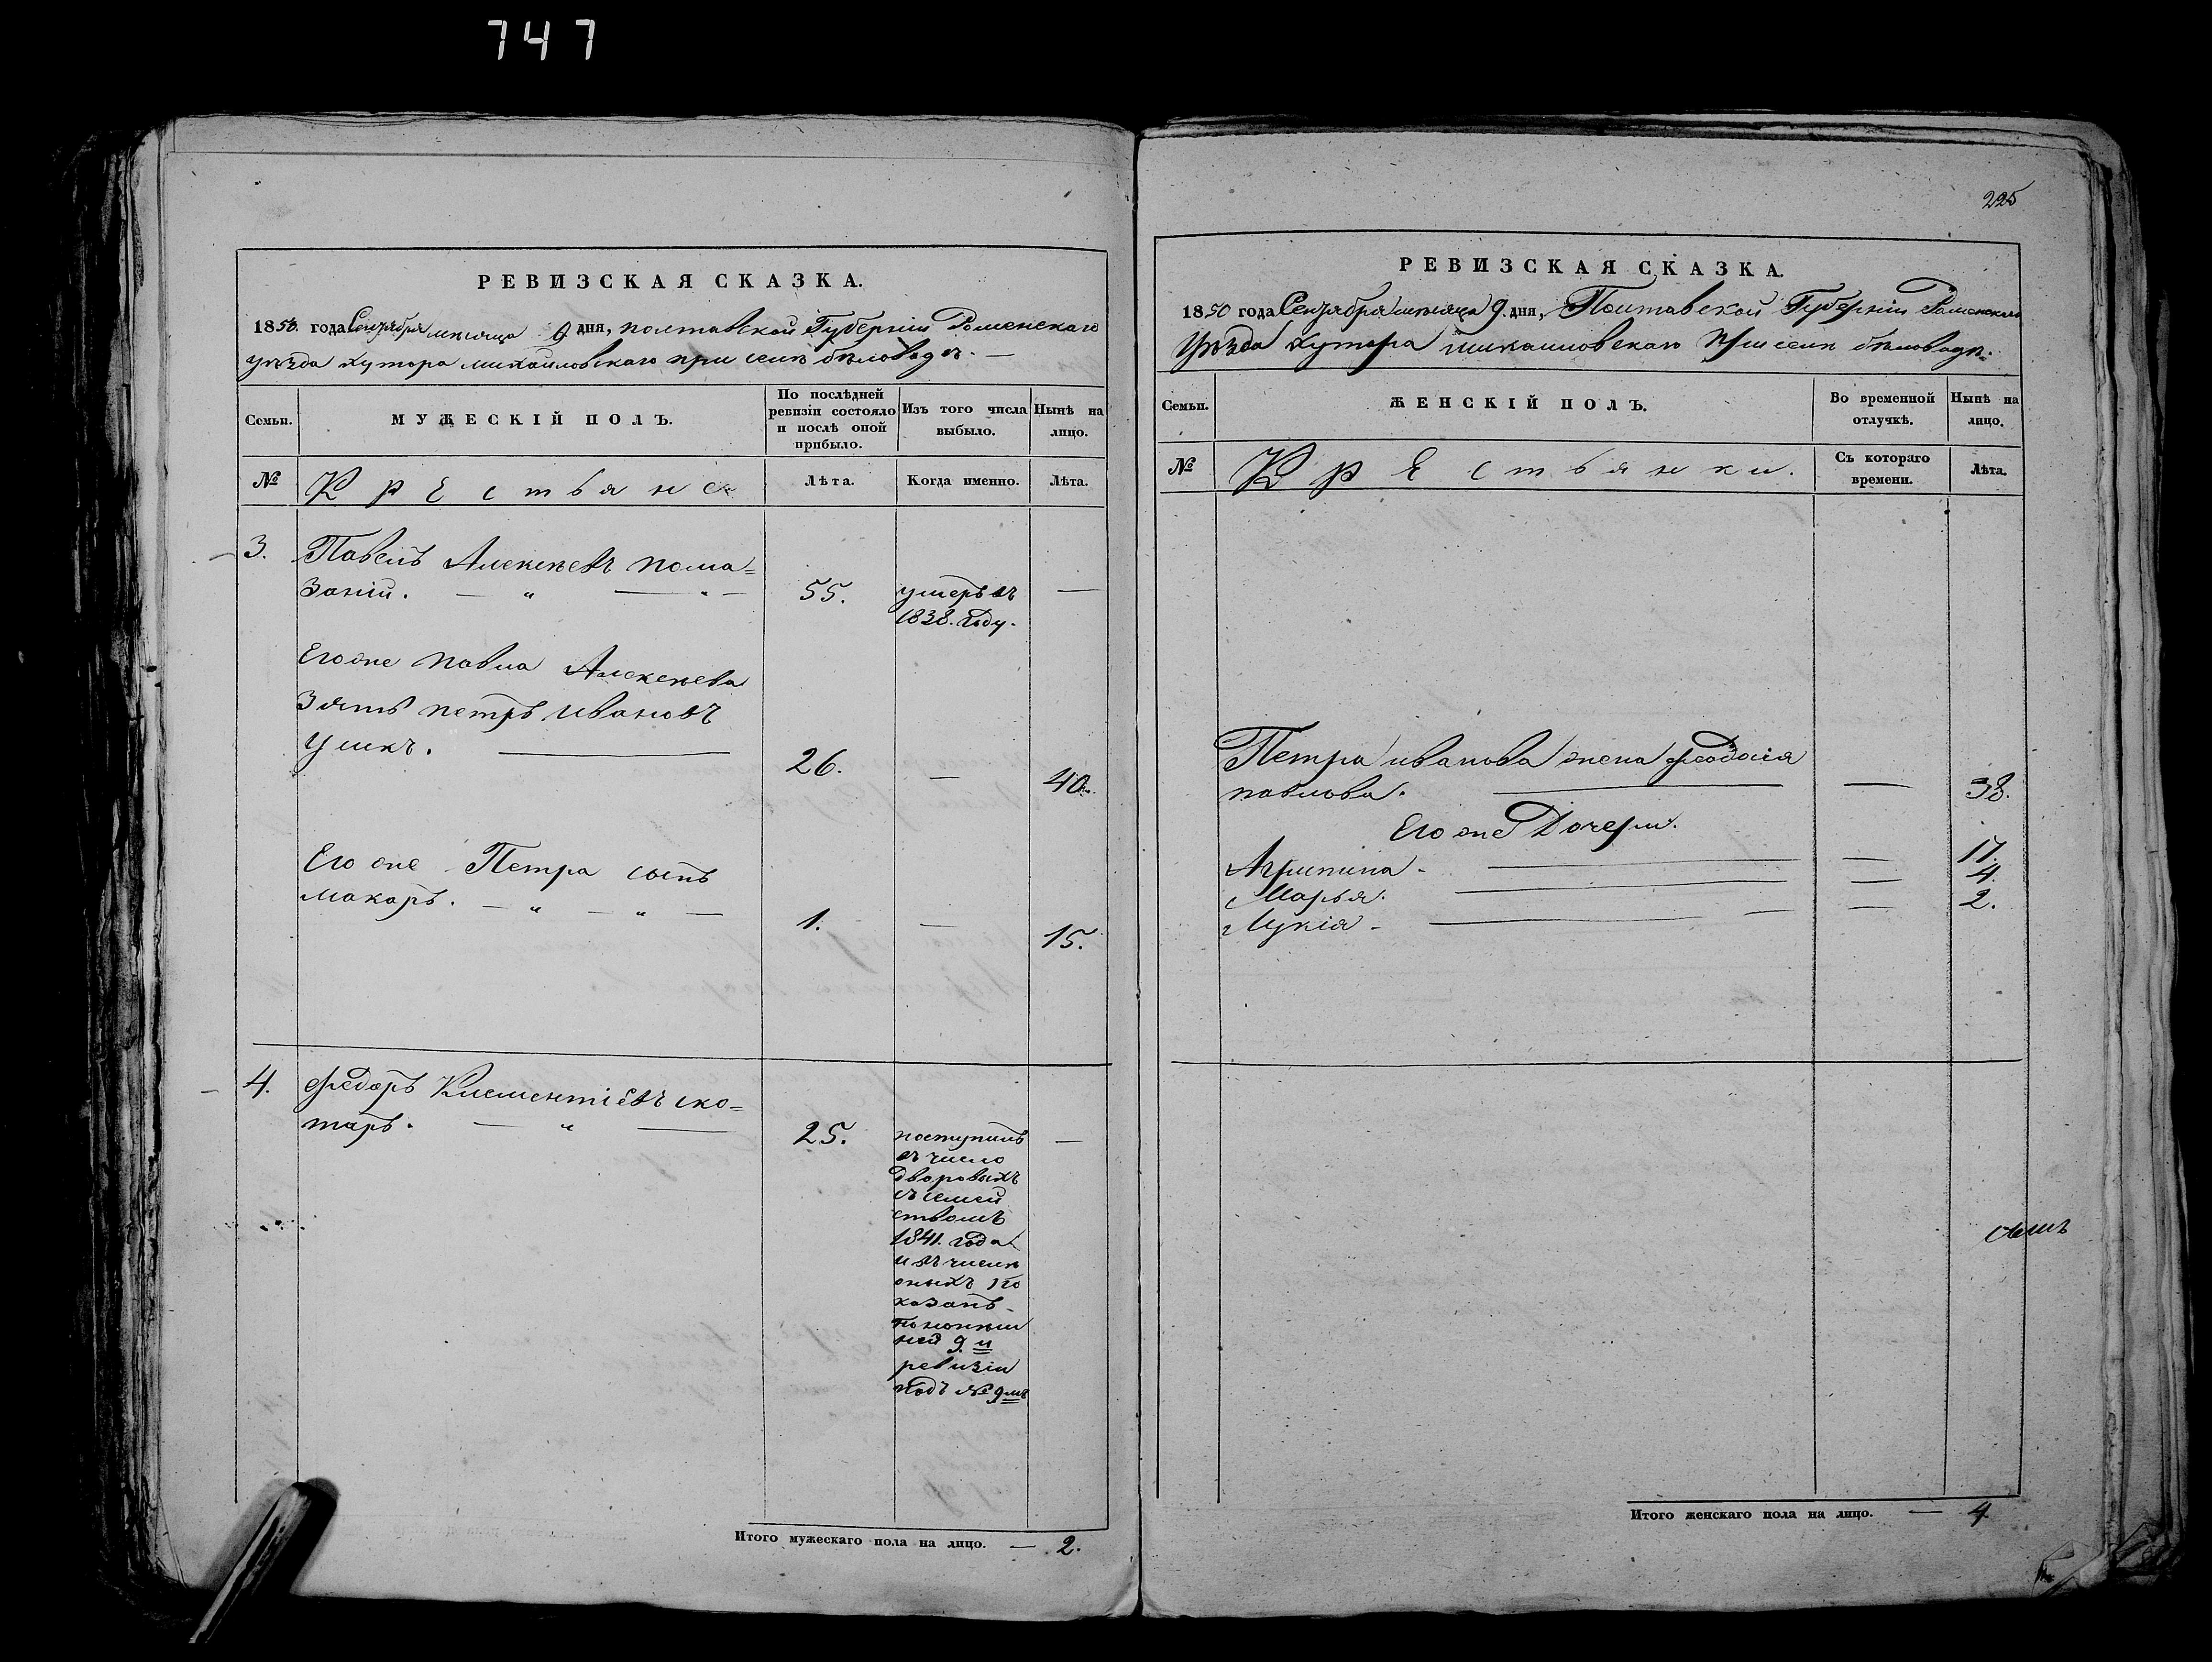 747
РЕВИЗСКАЯ СКАЗКА.
1850. года Сентября мѣсяца 9 дня, полтавской Губерніи Роменскаго
уѣзда хутора михайловскаго при селѣ бѣловодѣ. —
Семьи.
МУЖЕСКІЙ ПОЛЪ.
По послѣдней
ревизіи состояло
и послѣ оной
прибыло.
Изъ того числа
выбыло.
Нынѣ на
лицо.
№
Крестьяне
Лѣта.
Когда именно.
Лѣта.
3. Павелъ Алексѣевъ пома=
заній. — " — " — 55. умеръ въ —
1838. году.
Егоже павла Алексѣева
Зять петръ ивановъ
— 26. — 40.
Его же Петра сынъ
макаръ. — " — " — 1. — 15.
4. Федоръ Клементіевъ ско=
таръ. — " — 25. поступилъ —
въ число
дворовыхъ
съ семей
ствомъ
1841. года
и въ числѣ
оныхъ по
казанъ
по нонѣш
ней 9.й
ревизіи
подъ № 9мъ
Итого мужескаго пола на лицо. — 2.
225
РЕВИЗСКАЯ СКАЗКА.
1850 года Сентября мѣсяца 9. дня, Полтавской Губерніи Роменскаго
Уѣзда хутора михаиловскаго При селѣ бѣловодѣ.
Семьи.
ЖЕНСКІЙ ПОЛЪ.
Во временной
отлучкѣ.
Нынѣ на
лицо.
№
Крестьянки.
Съ котораго
времени.
Лѣта.
Петра иванова жена феодосія
павлова. — — 38.
Его же Дочери.
Агрипина. — — 17.
Марья. — — 4.
Лукія — — 2.
Итого женскаго пола на лицо. — 4.